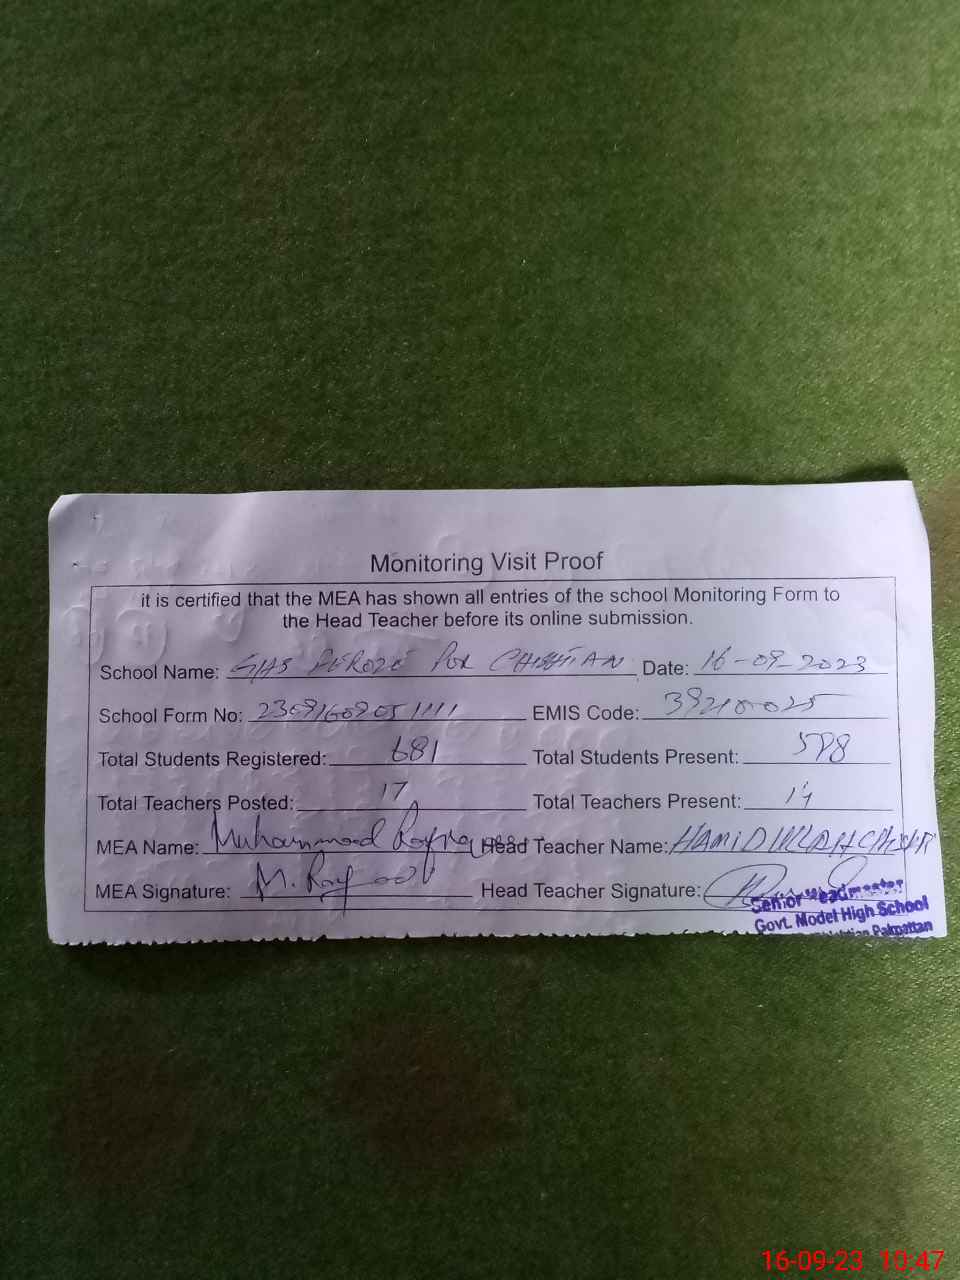 Monitoring Visit Proof
it is certified that the MEA has shown all entries of the school Monitoring Form to
the Head Teacher before its online submission.
School Name: GHS PEROZE POR CHISHTIAN Date: 16-09-2023
School Form No: EMIS Code: 39210025
Total Students Registered: 681 Total Students Present: 598
Total Teachers Posted: 17 Total Teachers Present: 14
MEA Name: Muhammad Head Teacher Name: HAMID ULLAH
MEA Signature: M. Head Teacher Signature:
Senior Headmaster
Govt. Model High School
Pakpattan
16-09-23 10:47